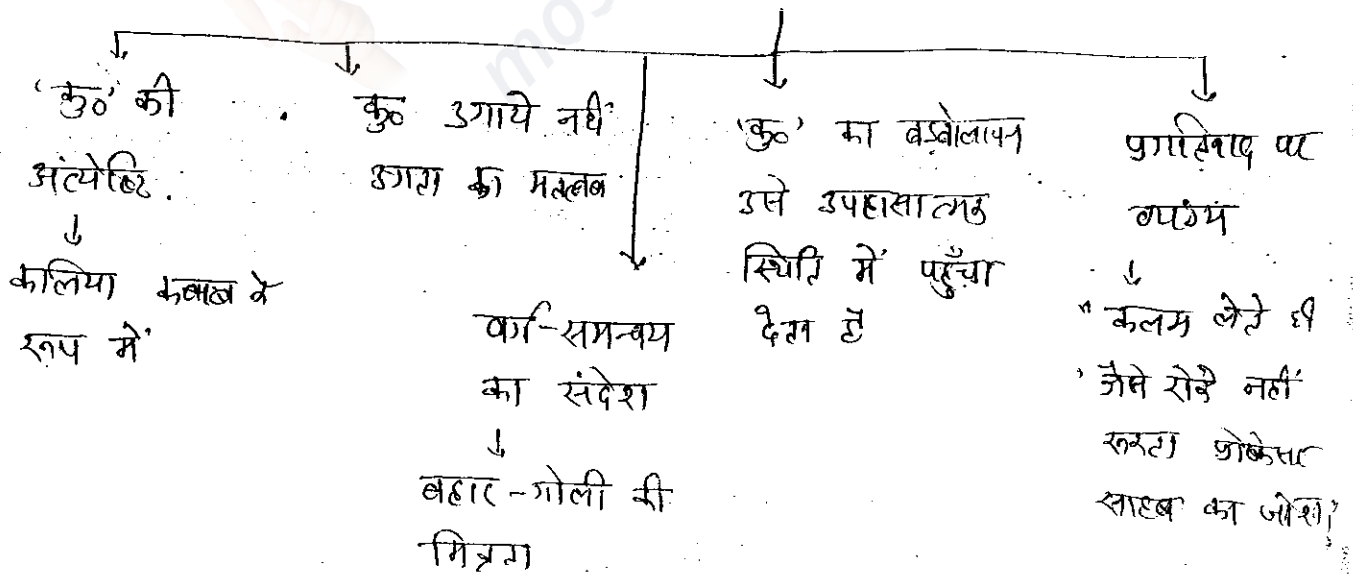 'कु०' की
अंत्येष्टि.
↓
कलिया कबाब के
रूप में
कु० उगाये नहीं
उगता का मतलब
वर्ग-समन्वय
का संदेश
↓
बहार-गोली की
मित्रता
'कु०' का बड़बोलापन
उसे उपहासात्मक
स्थिति में पहुँचा
देता है
प्रगतिवाद पर
व्यंग्य
↓
"कलम लेते ही
'जैसे रोके नहीं
रुकता प्रोफेसर
साहब का जोश।'